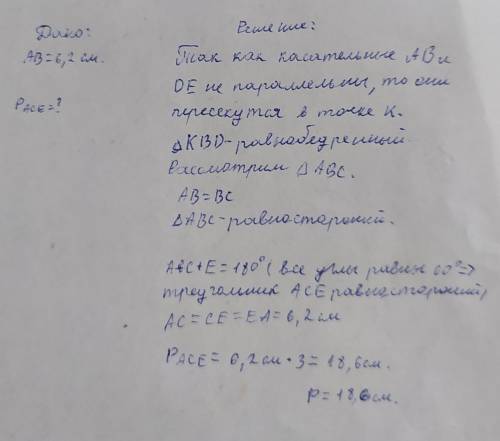 Дано:
АВ=6,2 см.
PACE=?
Решение:
Так как касательные АВ и
DE не параллельны, то они
пересекутся в точке К.
△KBD-равнобедренный.
Рассмотрим △ABC.
AB=BC
△ABC-равносторонний.
A+C+E=180° (все углы равны 60°=>
треугольник ACE равносторонний)
AC=CE=EA=6,2 см
PACE= 6,2 см·3=18,6 см.
P=18,6 см.